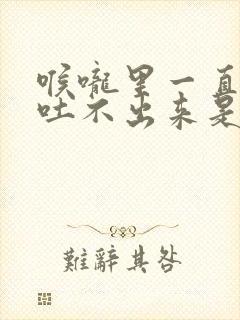 喉嚨里一直
吐不出来是
難辭其咎